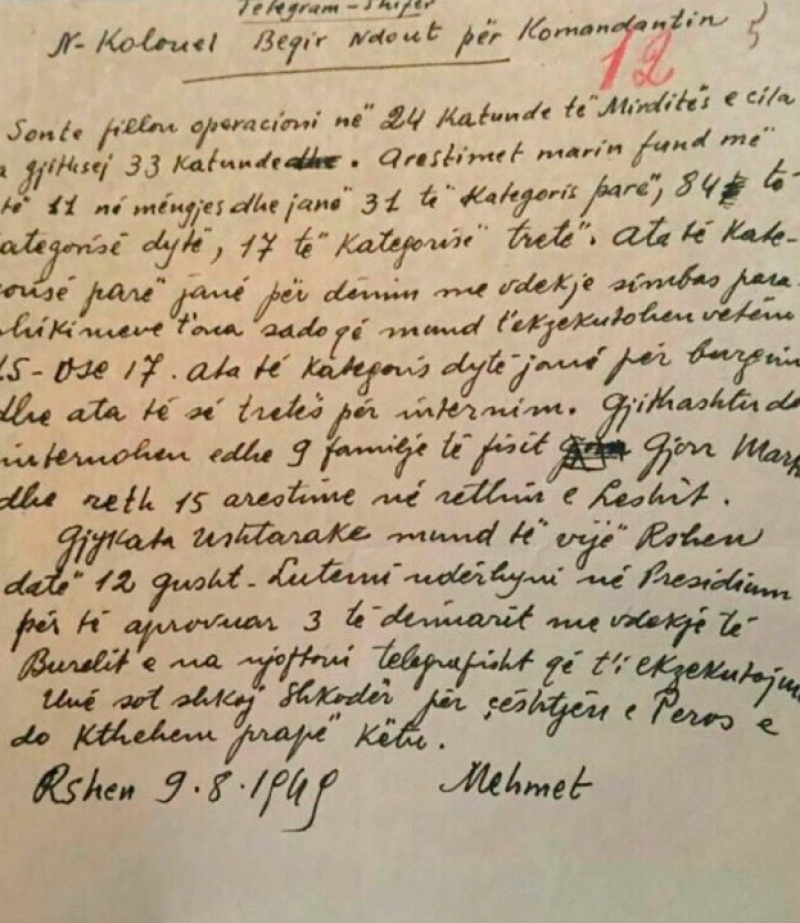 Telegram - Shifër
N- Kolonel Beqir Ndout për Komandantin
12
Sonte fillon operacioni në 24 Katunde të Mirditës e cila
a gjithsej 33 Katunde. Arestimet marin fund më
të 11 në mëngjes dhe janë 31 të "Kategoris parë", 84 të
ategorisë dytë, 17 të "Kategorisë" tretë". Ata të Kate-
orisë parë" janë për dënim me vdekje simbas para-
shikimeve t'ona sado që mund t'ekzekutohen vetëm
15- ose 17. Ata të Kategoris dytë janë për burgim
dhe ata të së tretës për internim. Gjithashtu do
internohen edhe 9 familje të fisit Gjon Mark
dhe reth 15 arestime në rethin e Leshit.
Gjykata Ushtarake mund të vijë Rshen
datë 12 gusht - Lutemi ndërhyni në Presidium
për të aprovuar 3 të denuarit me vdekje të
Burelit e na njoftoni telegrafisht që t'i ekzekutojm
Unë sot shkoj Shkodër për çështjen e Peros e
do Kthehem prapë këtu.
Rshen 9.8.1949 Mehmet